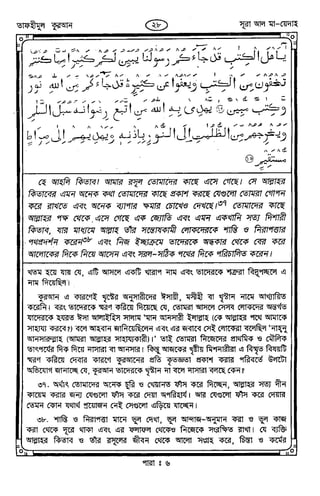 তাফহীমুল কুরআন
২৮
সূরা আল মা-য়েদাহ
يَأَهْلَ الْكِتَبِ قَدْ جَاءَكُمْ رَسُولُنَا يُبَيِّنُ لَكُمْ كَثِيرًا مِّمَّا كُنْتُمْ
تُخْفُونَ مِنَ الْكِتَبِ وَيَعْفُوا عَنْ كَثِيرٍ قَدْ جَاءَكُمْ مِّنَ اللهِ نُورٌ
وَّكِتَبٌ مُّبِينٌ يَّهْدِي بِهِ اللهُ مَنِ اتَّبَعَ رِضْوَانَهُ سُبُلَ السَّلَمِ
وَيُخْرِجُهُمْ مِّنَ الظُّلُمَتِ إِلَى النُّورِ بِإِذْنِهِ وَيَهْدِيهِمْ إِلَى صِرَاطٍ
مُّسْتَقِيمٍ
হে আহলি কিতাব! আমার রসূল তোমাদের কাছে এসে গেছে। সে আল্লাহর
কিতাবের এমন অনেক কথা তোমাদের কাছে প্রকাশ করছে যেগুলো তোমরা গোপন
করে রাখতে এবং অনেক ব্যাপার ক্ষমার চোখেও দেখছে।৩৭ তোমাদের কাছে
আল্লাহর পক্ষ থেকে এসে গেছে এক জ্যোতি এবং এমন একখানি সত্য দিশারী
কিতাব, যার মাধ্যমে আল্লাহ তাঁর সন্তোষকামী লোকদেরকে শান্তি ও নিরাপত্তার
পথপ্রদর্শন করেন৩৮ এবং নিজ ইচ্ছাক্রমে তাদেরকে অন্ধকার থেকে বের করে
আলোকের দিকে নিয়ে আসেন এবং সরল-সঠিক পথের দিকে পরিচালিত করেন।
খতম হয়ে যায় যে, এটি আসলে একটি খারাপ নাম এবং তাদেরকে শত্রুরা বিদ্রূপচ্ছলে এ
নাম দিয়েছিল।
কুরআন এ কারণেই খৃষ্টের অনুসারীদের ঈসায়ী, মসীহী বা খৃষ্টান নামে আখ্যায়িত
করেনি। বরং তাদেরকে স্মরণ করিয়ে দিয়েছে যে, তোমরা আসলে সেসব লোকদের অন্তর্গত
যাদেরকে হযরত ঈসা আলাইহিস সালাম 'মান আনসারী ইলাল্লাহ (কে আল্লাহর পথে আমাকে
সাহায্য করবে?) বলে আহবান জানিয়েছিলেন এবং এর জবাবে সেই লোকেরা বলেছিল 'নাহনু
আনসারুল্লাহ (আমরা আল্লাহর সাহায্যকারী)।' তাই তোমরা নিজেদের প্রাথমিক ও মৌলিক
তাৎপর্যের দিক দিয়ে নাসারা বা আনসার। কিন্তু আজকের খৃষ্টীয় মিশনারীরা এ বিস্মৃত বিষয়টি
স্মরণ করিয়ে দেবার কারণে কুরআনের প্রতি কৃতজ্ঞতা প্রকাশ করার পরিবর্তে উলটো
অভিযোগ জানাচ্ছে যে, কুরআন তাদেরকে খৃষ্টান না বলে নাসারা বলছে কেন?
৩৭. অর্থাৎ তোমাদের অনেক চুরি ও খেয়ানত ফাঁস করে দিচ্ছেন, আল্লাহর সত্য দীন
কায়েম করার জন্য যেগুলো ফাঁস করে দেয়া অপরিহার্য। আর যেগুলো ফাঁস করে দেয়ার
তেমন কোন যথার্থ প্রয়োজন নেই সেগুলো এড়িয়ে যাচ্ছেন।
৩৮. শান্তি ও নিরাপত্তা মানে ভুল দেখা, ভুল আন্দাজ-অনুমান করা ও ভুল কাজ
করা থেকে দূরে থাকা এবং এর ফলাফল থেকেও নিজেকে সংরক্ষিত রাখা। যে ব্যক্তি
আল্লাহর কিতাব ও তাঁর রসূলের জীবন থেকে আলো সংগ্রহ করে, চিন্তা ও কর্মের
পারা : ৬